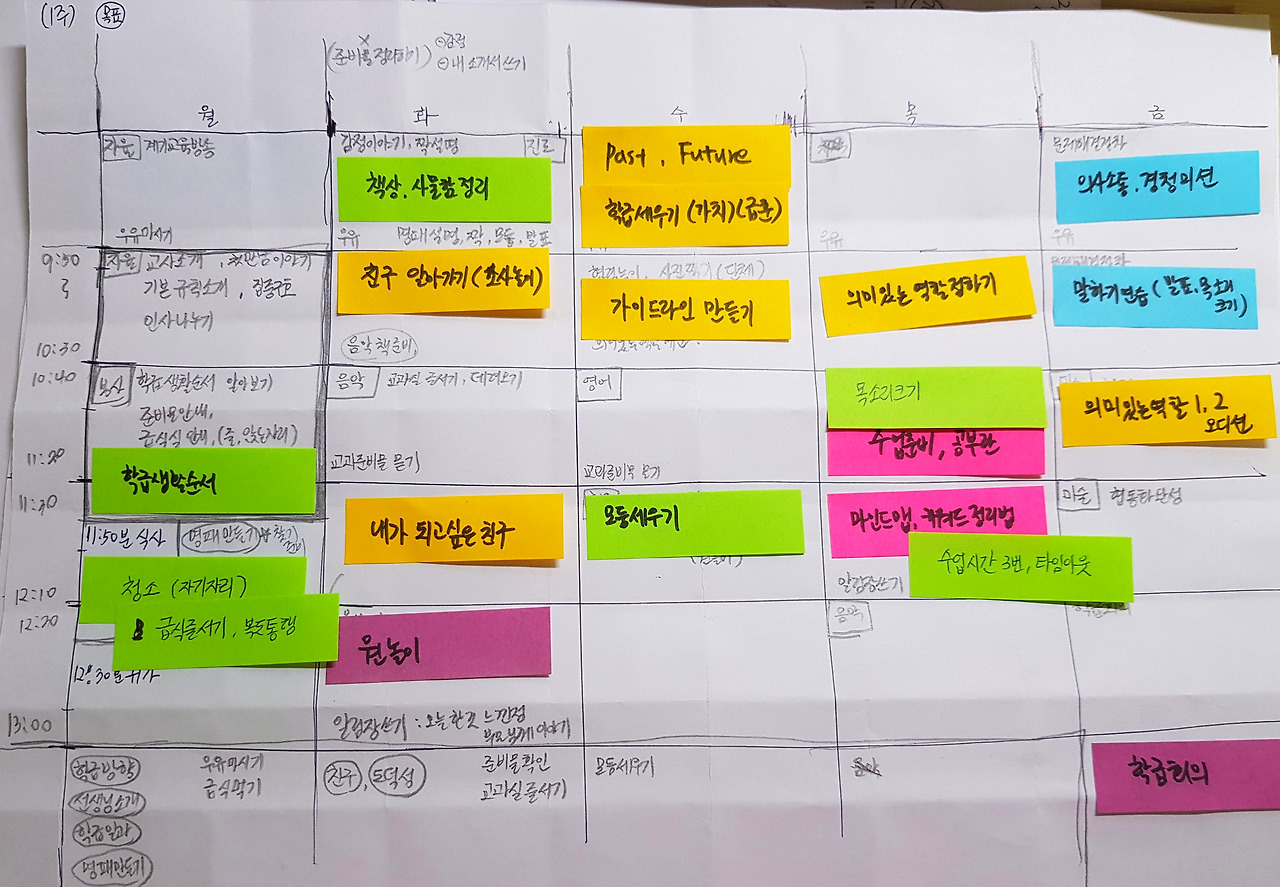 (1주) 목표
(준비물 정리하기)
내 소개서 쓰기
월 화 수 목 금
자율
감정이야기, 짝설명
진로
Past, Future
책상, 사물함 정리
학급세우기 (가치)
의사소통, 경청미션
우유마시기
우유
명패 설명, 짝, 모둠, 발표
우유
우유
9:50
자율 교사소개, 첫만남이야기
기본 규칙소개, 집중구호
인사나누기
친구 알아가기
가이드라인 만들기
의미있는 역할 정하기
말하기연습 (발표, 목소리
크기)
음악책 준비,
10:30
10:40
학급생활순서 알아보기
준비물안내,
급식실 안내, (줄, 앉는자리)
음악 교과실 줄서기, 데려오기
영어
목소리크기
수업준비, 공부판
의미있는역할 1, 2
오디션
11:20
학급생활순서
교과준비물 묻기
교과준비물 묻기
11:30
11:50분 식사
명패만들기
내가 되고싶은 친구
모둠세우기
마인드맵, 키워드 정리법
미술 협동타문성
수업시간 3번, 타임아웃
알림장쓰기
12:10
청소 (자기자리)
12:20
급식줄서기, 복도통행
원놀이
음악
13:00
알림장쓰기 : 오늘 한것 느낀점
부모님께 이야기
학급방향
선생님소개
학급일과
명패만들기
우유마시기
급식먹기
친구, 도덕성
준비물확인
교과실 줄서기
모둠세우기
학급회의